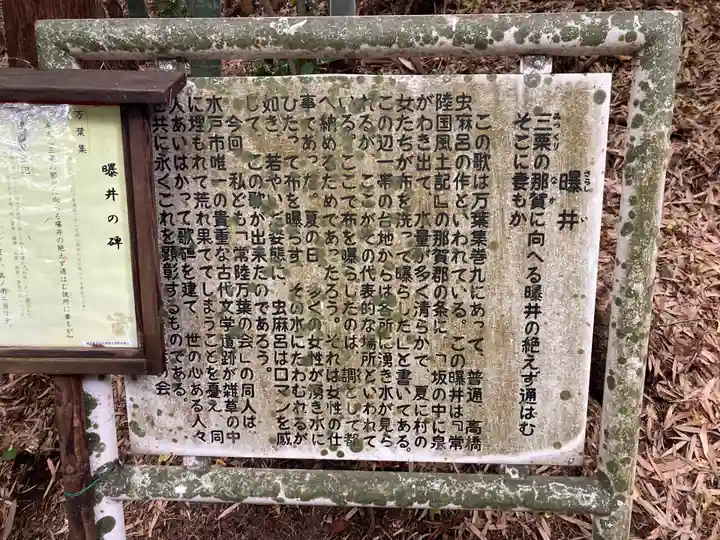 曝井
さらし い
三栗の那賀に向へる曝井の絶えず通はむ
みつくり なか
そこに妻もか
この歌は万葉集巻九にあって、普通、高橋
虫麻呂の作といわれている。この曝井は『常
陸国風土記』の那賀郡の条に、「坂の中に泉
がわき出て、水量が多く清らかで、夏に村の
女たちが布を洗って曝らした」と書いてある。
この辺一帯の台地からは各所に湧き水が見ら
れるが、ここがその代表的な場所といわれて
いる。ここで布を曝らしたのは、調として都
へ納めるためであったろう。それは女性の仕
事であった。夏の日、多くの女性が湧き水に
ひたって布を曝らす、その水にたわむれるが
如き、若やいだ姿態に、虫麻呂はロマンを感
じて、この歌が出来たのであろう。
今回、私ども「常陸万葉の会」の同人は
水戸市唯一の貴重な古代文学遺跡が雑草の中
に埋もれて荒れ果ててしまうことを憂え、同
人あいはかって歌碑を建て、世の心ある人々
と共に永くこれを顕彰するものである
の会
曝井の碑
万葉集
三栗の那賀に向へる曝井の絶えず通はむ彼所に妻もが